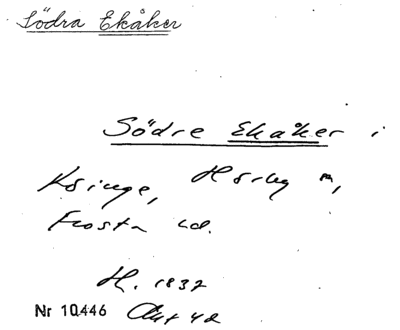 Södra Ekåker
Södre Ekåker i
Ksinge, Hörby m,
Frosta hd.
H. 1832
Nr 10446 Akt 42